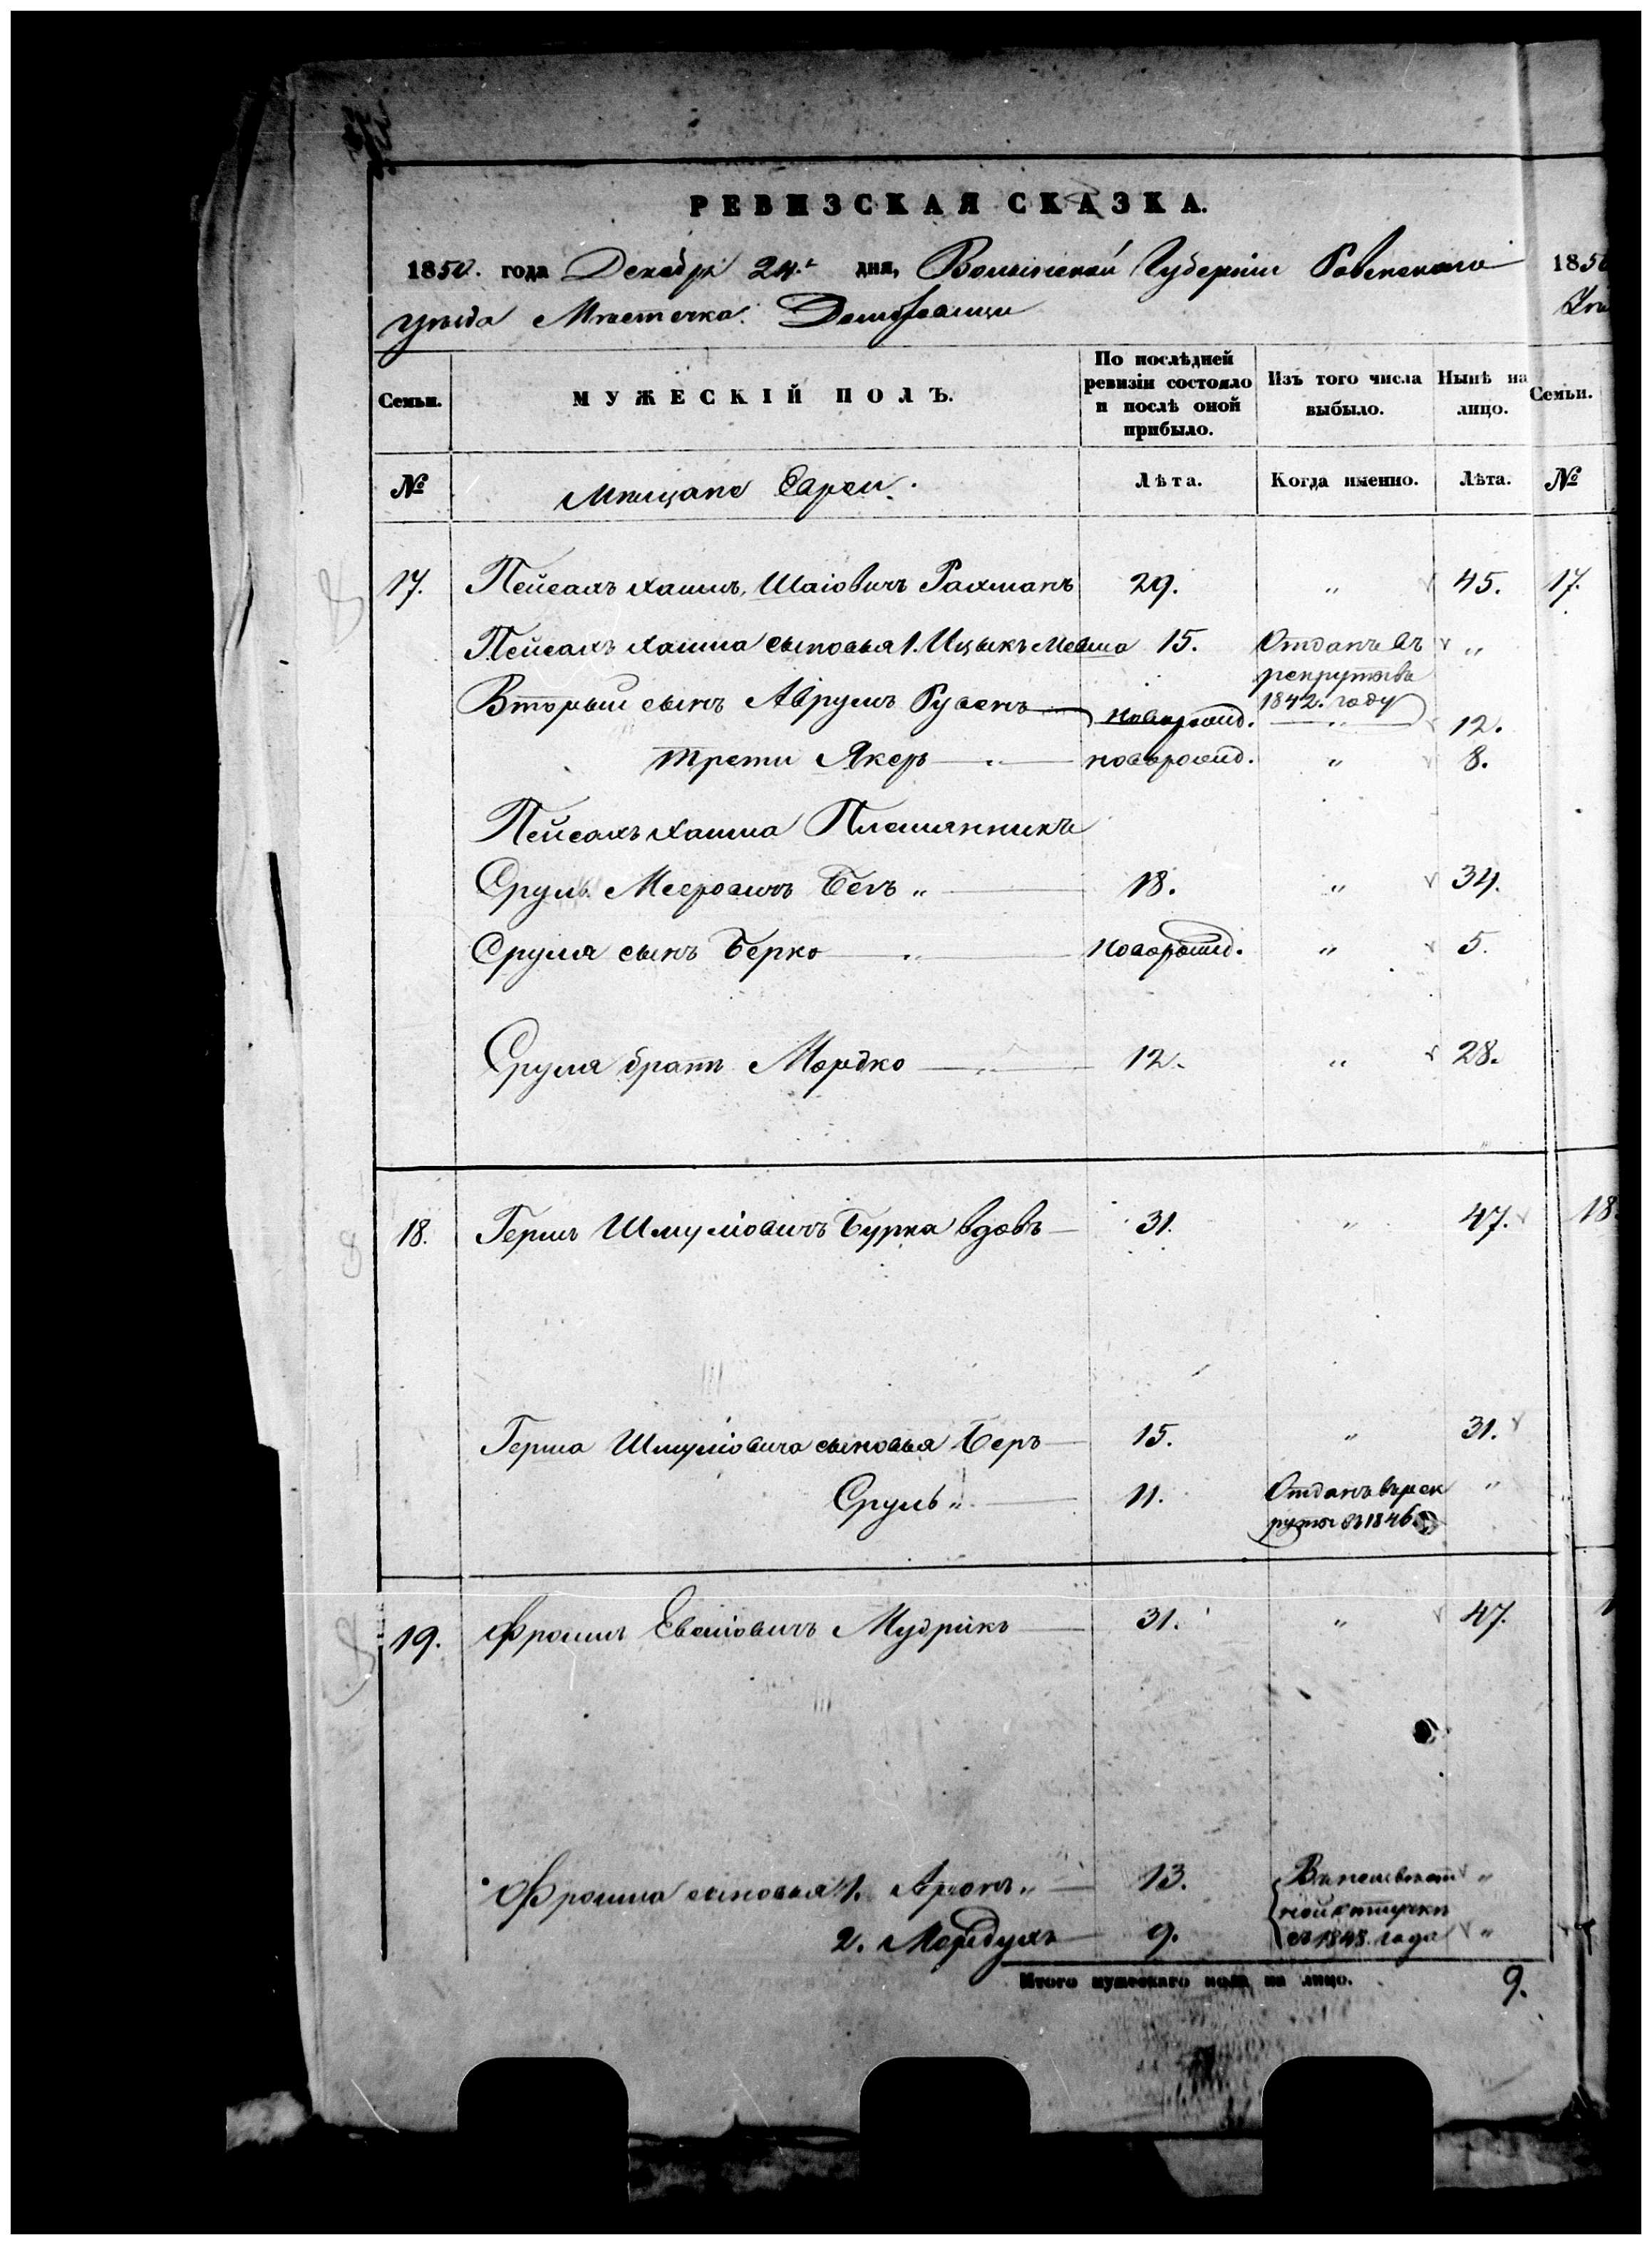 РЕВИЗСКАЯ СКАЗКА.
1850. года Декабря 24.го дня, Волынской Губернiи Ровенскаго
уѣзда Мѣстечка
Семьи. МУЖЕСКІЙ ПОЛЪ. По послѣдней ревизіи состояло и послѣ оной прибыло. Изъ того числа выбыло. Нынѣ на лицо. Семьи.
№ Мѣщане Евреи. Лѣта. Когда именно. Лѣта. №
17. Пейсахъ Хаимъ, Шаiовичъ Рахманъ 29. „ 45. 17.
Пейсахъ Хаима сыновья 1. Ицыкъ 15. Отданъ въ рекрутъ въ 1842. году „
Вторый сынъ Аврумъ Рувенъ новорожд. „ 12.
трети Якер новорожд. „ 8.
Пейсахъ Хаима Племянникъ
Сруль Мееровичъ 18. „ 34.
Сруля сынъ Берко новорожд. „ 5.
Сруля братъ Мордко 12. „ 28.
18. Гершъ Шмулiовичъ Бурка вдовъ 31. „ 47. 18
Герша Шмулiовича сыновья Беръ 15. „ 31.
Сруль „ 11. Отданъ въ рек
руты въ 1846. „
19. Фроимъ Мудрикъ 31. „ 47.
Фроима сыновья 1. Аронъ „ 13. „
2. Мордухъ 9. съ 1848. года „
Итого мужескаго пола на лицо. 9.